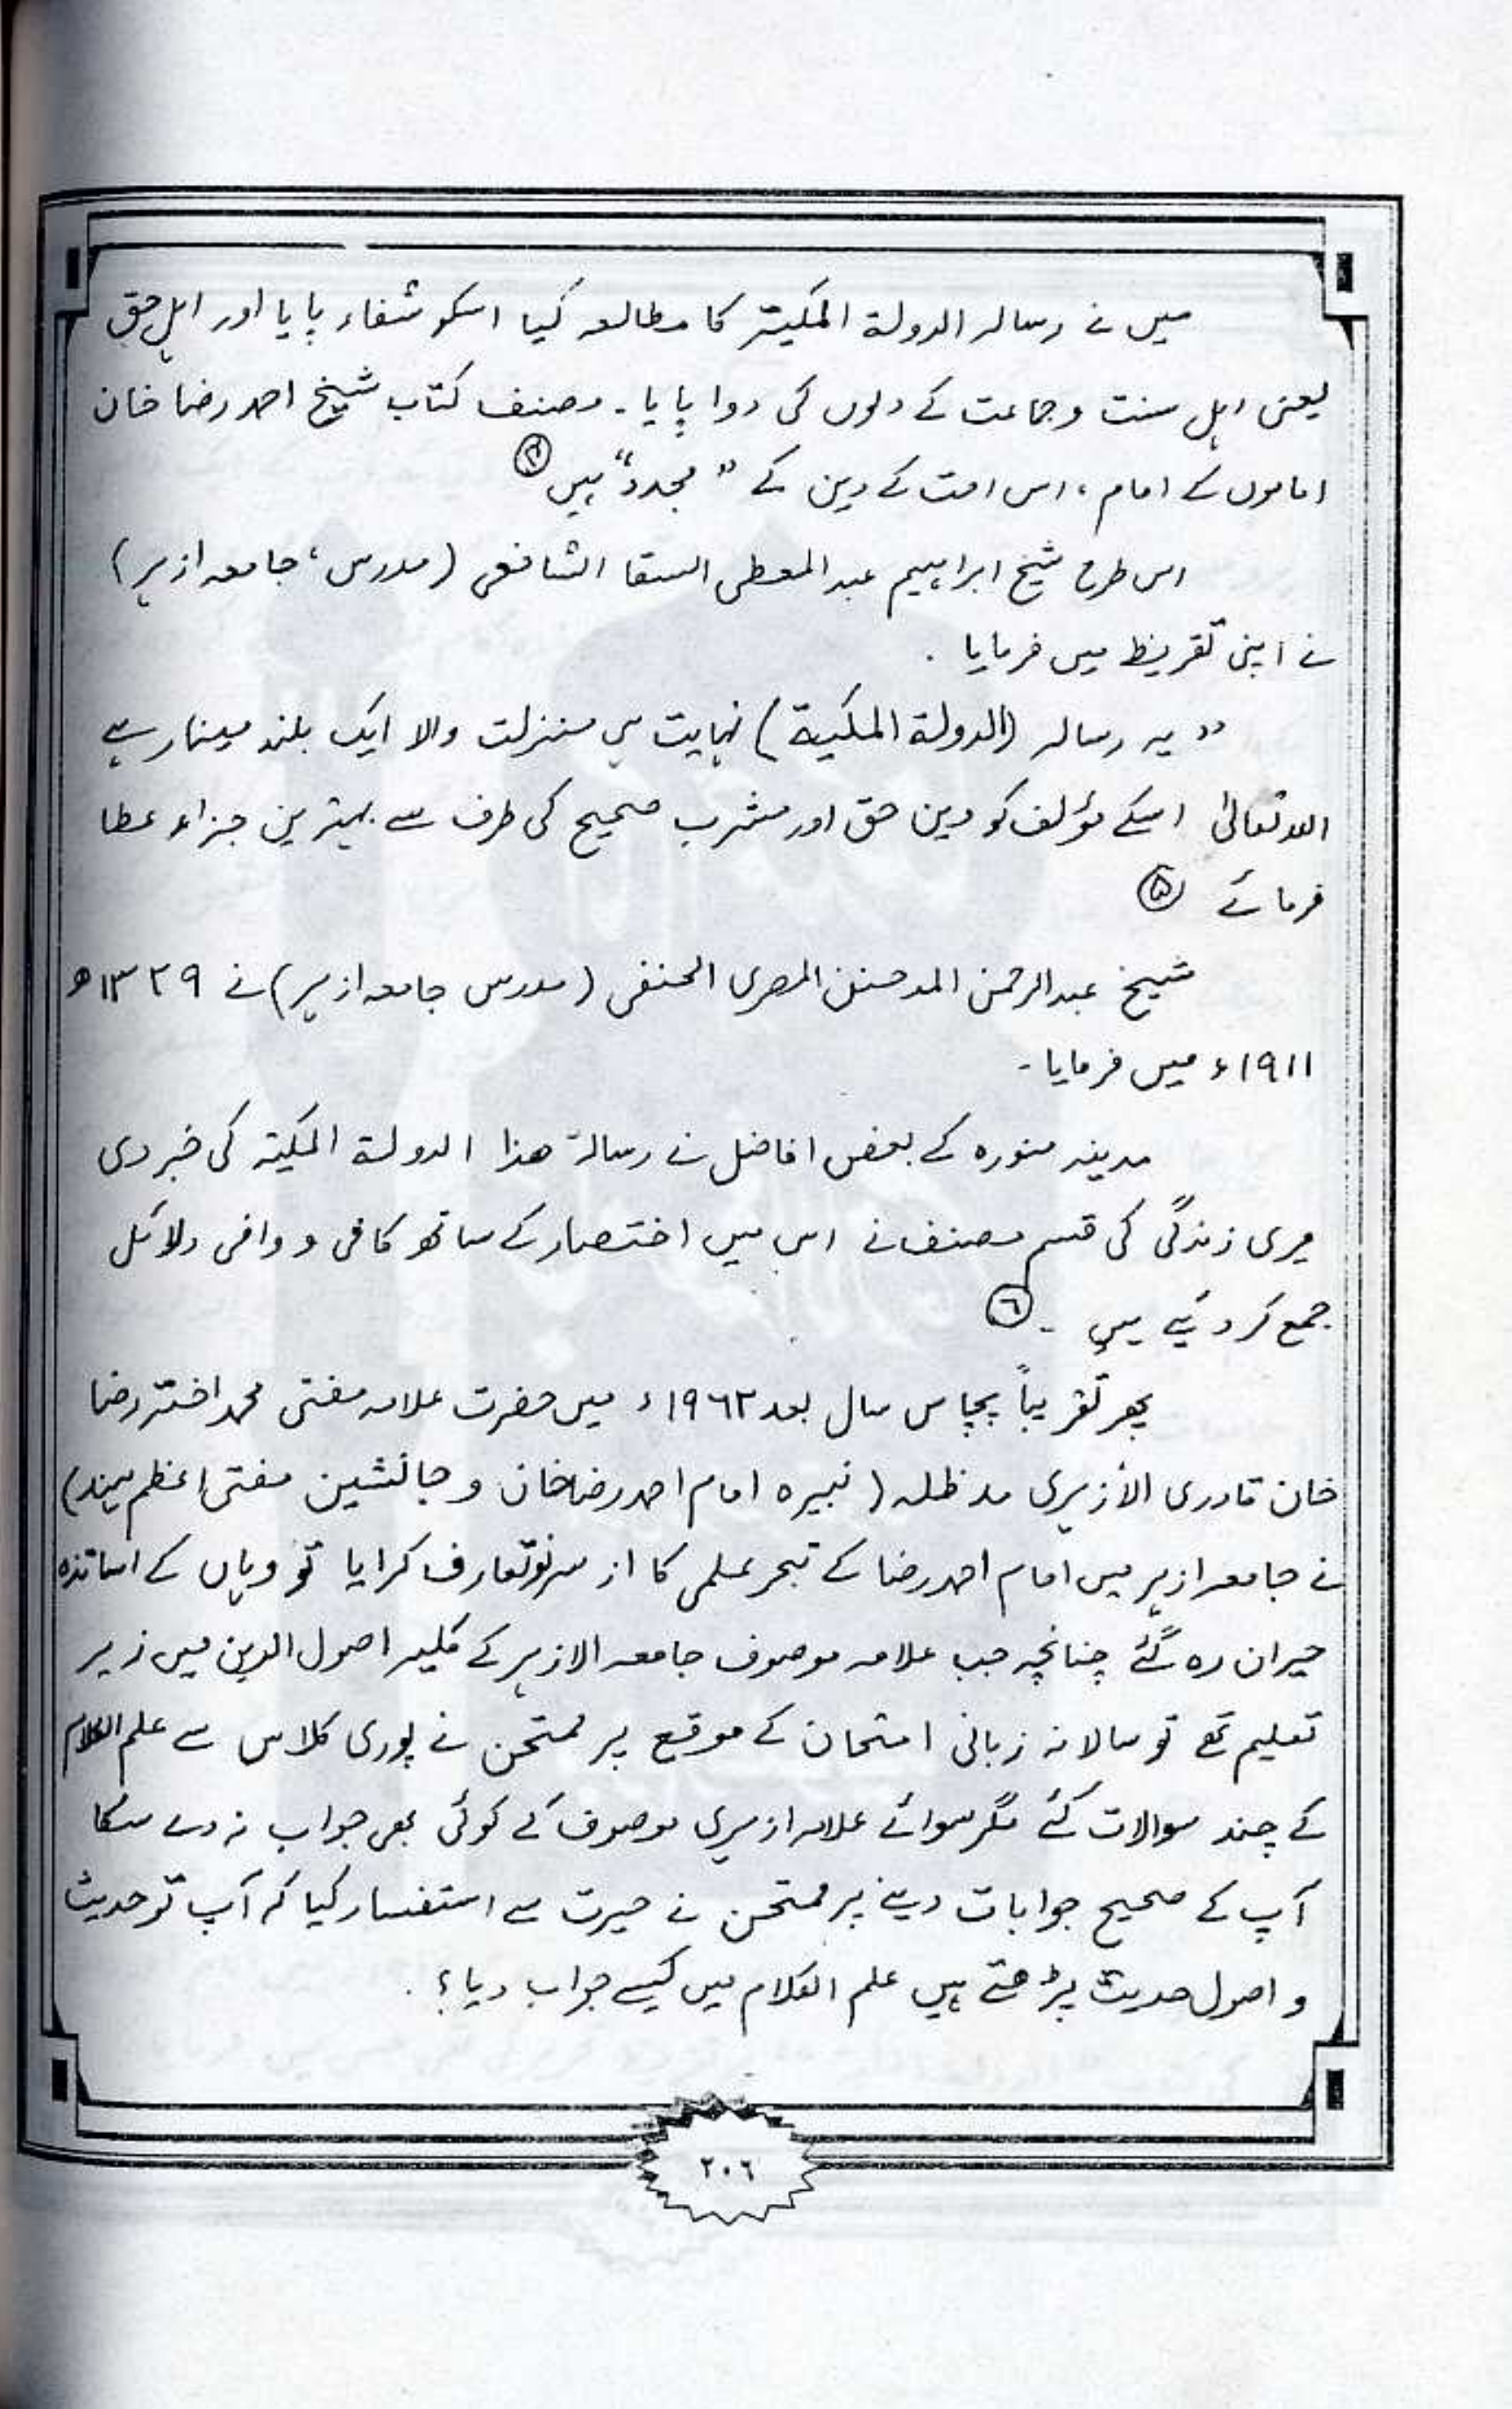 میں نے رسالہ الدولۃ المکیۃ کا مطالعہ کیا اسکو شفاء پایا اور اہل حق
یعنی اہل سنت وجماعت کے دلوں کی دوا پایا۔ مصنف کتاب شیخ احمد رضا خان
اماموں کے امام، اس امت کے دین کے "مجدد" ہیں ④
اس طرح شیخ ابراہیم عبد المعطی السقا الشافعی (مدرس، جامعہ ازہر)
نے اپنی تقریظ میں فرمایا ۔
"یہ رسالہ (الدولۃ المکیۃ) نہایت ہی منزلت والا ایک بلند مینار ہے
اللہ تعالیٰ اسکے مؤلف کو دین حق اور مشرب صحیح کی طرف سے بہترین جزاء عطا
فرمائے ⑤
شیخ عبدالرحمٰن المصری الحنفی (مدرس جامعہ ازہر) نے ۱۳۲۹ھ
۱۹۱۱ء میں فرمایا۔
مدینہ منورہ کے بعض افاضل نے رسالۃ ھذا الدولۃ المکیۃ کی خبر دی
میری زندگی کی قسم مصنف نے اس میں اختصار کے ساتھ کافی و وافی دلائل
جمع کر دیئے ہیں ۔ ⑥
پھر تقریباً پچاس سال بعد ۱۹٦۳ء میں حضرت علامہ مفتی محمد اختر رضا
خان قادری الازہری مدظلہ (نبیرہ امام احمد رضا خان و جانشین مفتی اعظم ہند)
نے جامعہ ازہر میں امام احمد رضا کے تبحر علمی کا از سرنو تعارف کرایا تو وہاں کے اساتذہ
حیران رہ گئے چنانچہ جب علامہ موصوف جامعہ الازہر کے کلیہ اصول الدین میں زیر
تعلیم تھے تو سالانہ زبانی امتحان کے موقع پر ممتحن نے پوری کلاس سے علم الکلام
کے چند سوالات کئے مگر سوائے علامہ ازہری موصوف کے کوئی بھی جواب نہ دے سکا
آپ کے صحیح جوابات دینے پر ممتحن نے حیرت سے استفسار کیا کہ آپ تو حدیث
و اصول حدیث پڑھتے ہیں علم الکلام میں کیسے جواب دیا؟ ۔
۲۰٦